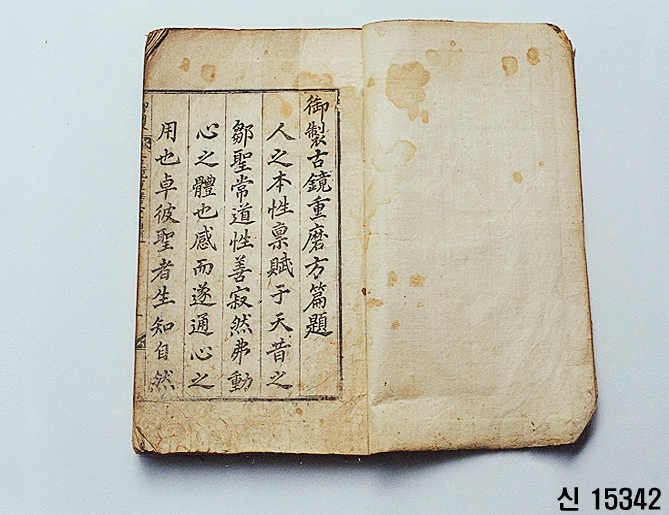 御製古鏡重磨方篇題
人之本性稟賦于天昔之
鄒聖常道性善寂然弗動
心之體也感而遂通心之
用也卓彼聖者生知自然
신 15342